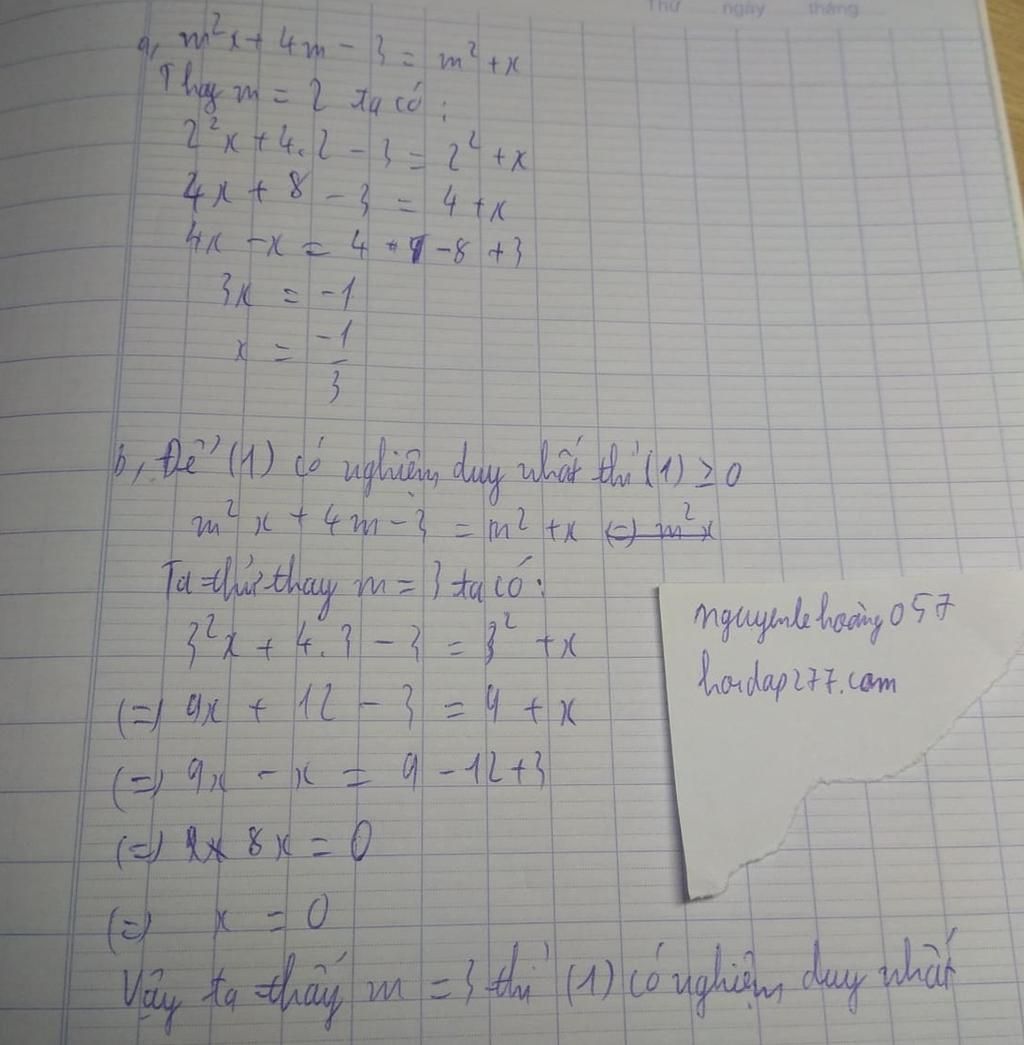 Thứ ngày tháng
a, m²x + 4m - 3 = m² + x
Thay m = 2 ta có:
2²x + 4.2 - 3 = 2² + x
4x + 8 - 3 = 4 + x
4x - x = 4 - 8 + 3
3x = -1
x = -1/3
b, Để (1) có nghiệm duy nhất thì (1) ≥ 0
m²x + 4m - 3 = m² + x (=) m²x
Ta thử thay m = 3 ta có:
3²x + 4.3 - 3 = 3² + x
(=) 9x + 12 - 3 = 9 + x
(=) 9x - x = 9 - 12 + 3
(=) 8x = 0
(=) x = 0
Vậy ta thấy m = 3 thì (1) có nghiệm duy nhất
nguyenlehoang057
hoidap277.com